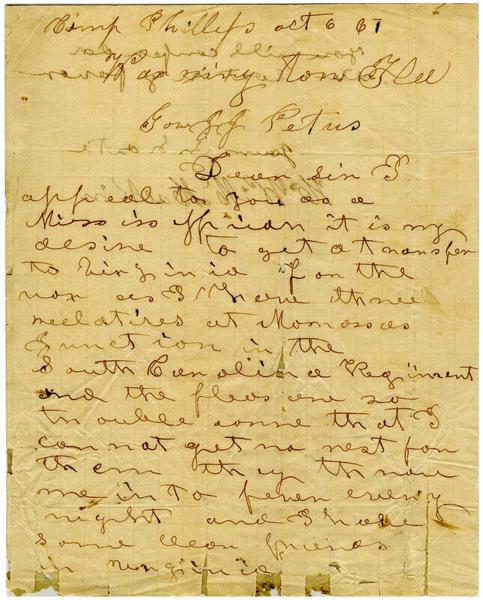 Camp Phillips oct 6 61
Warrington Fla
Gov J J Petus
Dear sir I
appeal to you as a
Mississippian it is my
desire to get a transfer
to Virginia for the
as I have three
relatives at Monassas
Junction in the
South Carolina Regiment
and the fleas are so
trouble some that I
can not get no rest for
them they throw
me in to fever every
night and I have
some dear friends
in